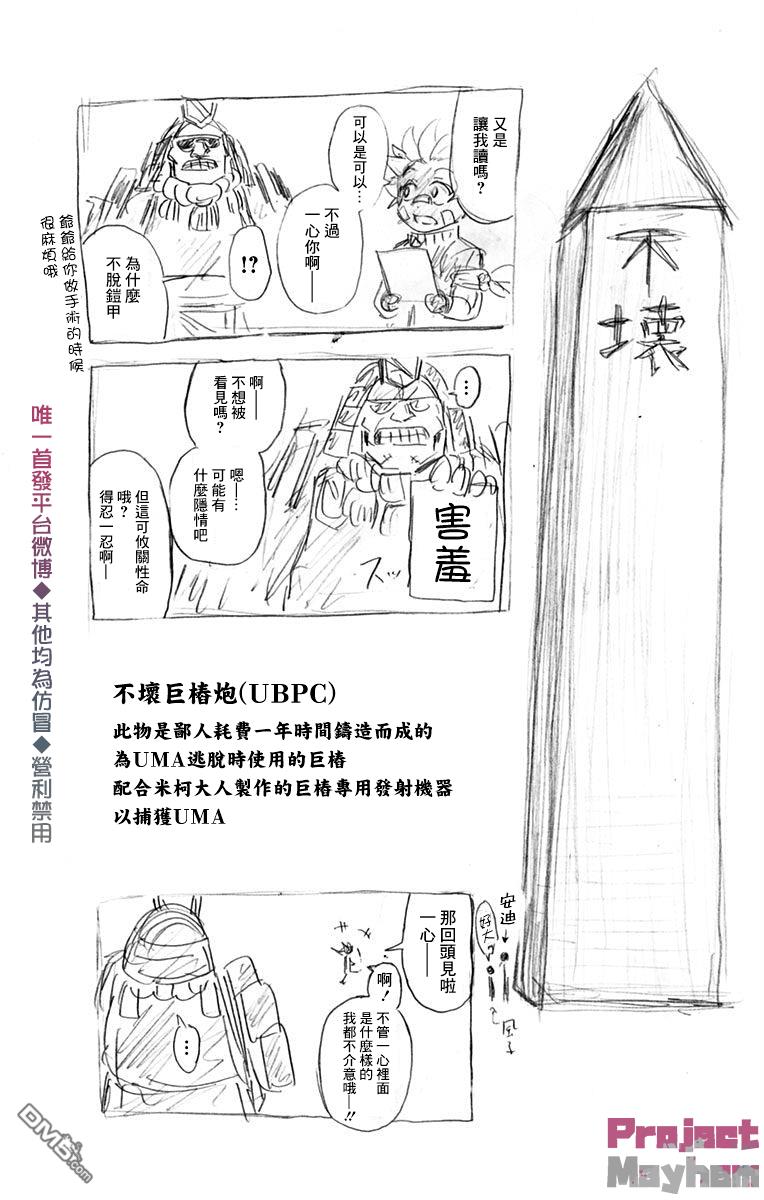 又是
讓我讀嗎?
可以是可以…
不過
一心你啊——
!?
為什麼
不脫鎧甲
爺爺給你做手術的時候
很麻煩哦
…
啊——
不想被
看見嗎?
嗯——…
可能有
什麼隱情吧
但這可攸關性命
哦?
得忍一忍啊—
害羞
スッ
不壞
唯一首發平台微博◆其他均為仿冒◆營利禁用
不壞巨樁炮(UBPC)
此物是鄙人耗費一年時間鑄造而成的
為UMA逃脫時使用的巨樁
配合米柯大人製作的巨樁專用發射機器
以捕獲UMA
安迪
好大
風子
那回頭見啦
一心——
啊!
不管一心裡面
是什麼樣的
我都不介意哦—!!
…
DM5.com
Project
Mayham